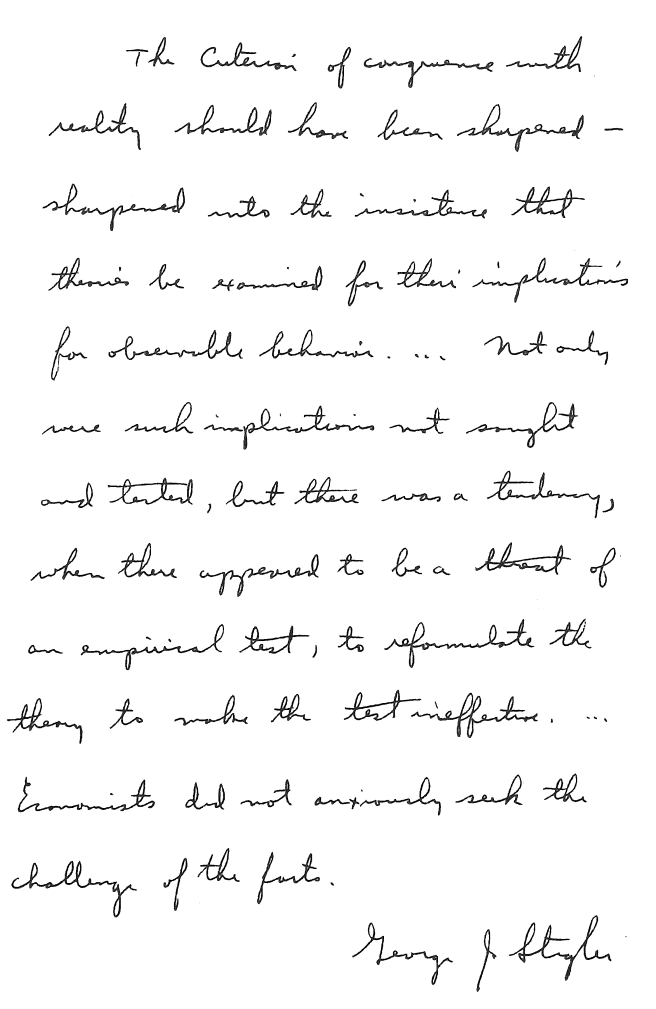 The Criterion of congruence with
reality should have been sharpened —
sharpened into the insistence that
theories be examined for their implications
for observable behavior. ... Not only
were such implications not sought
and tested, but there was a tendency,
when there appeared to be a threat of
an empirical test, to reformulate the
theory to make the test ineffective. ...
Economists did not anxiously seek the
challenge of the facts.
George J Stigler